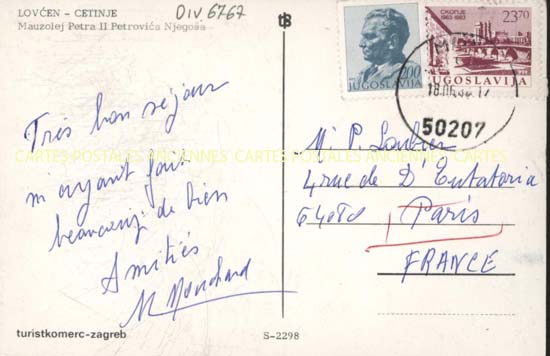 LOVĆEN – CETINJE
Mauzolej Petra II Petrovića Njegoša
DIV 6767
Très bon séjour
m'ayant fait
beaucoup de bien
Amitiés
turistkomerc-zagreb
S-2298
2.00
JUGOSLAVIJA
СКОПЈЕ
1963-1983
23.70
JUGOSLAVIJA
50207
M. P.
4 rue de
Paris
FRANCE
CARTES-POSTALES ANCIENNES CARTES-POSTALES ANCIENNES CARTES-POSTALES ANCIENNES